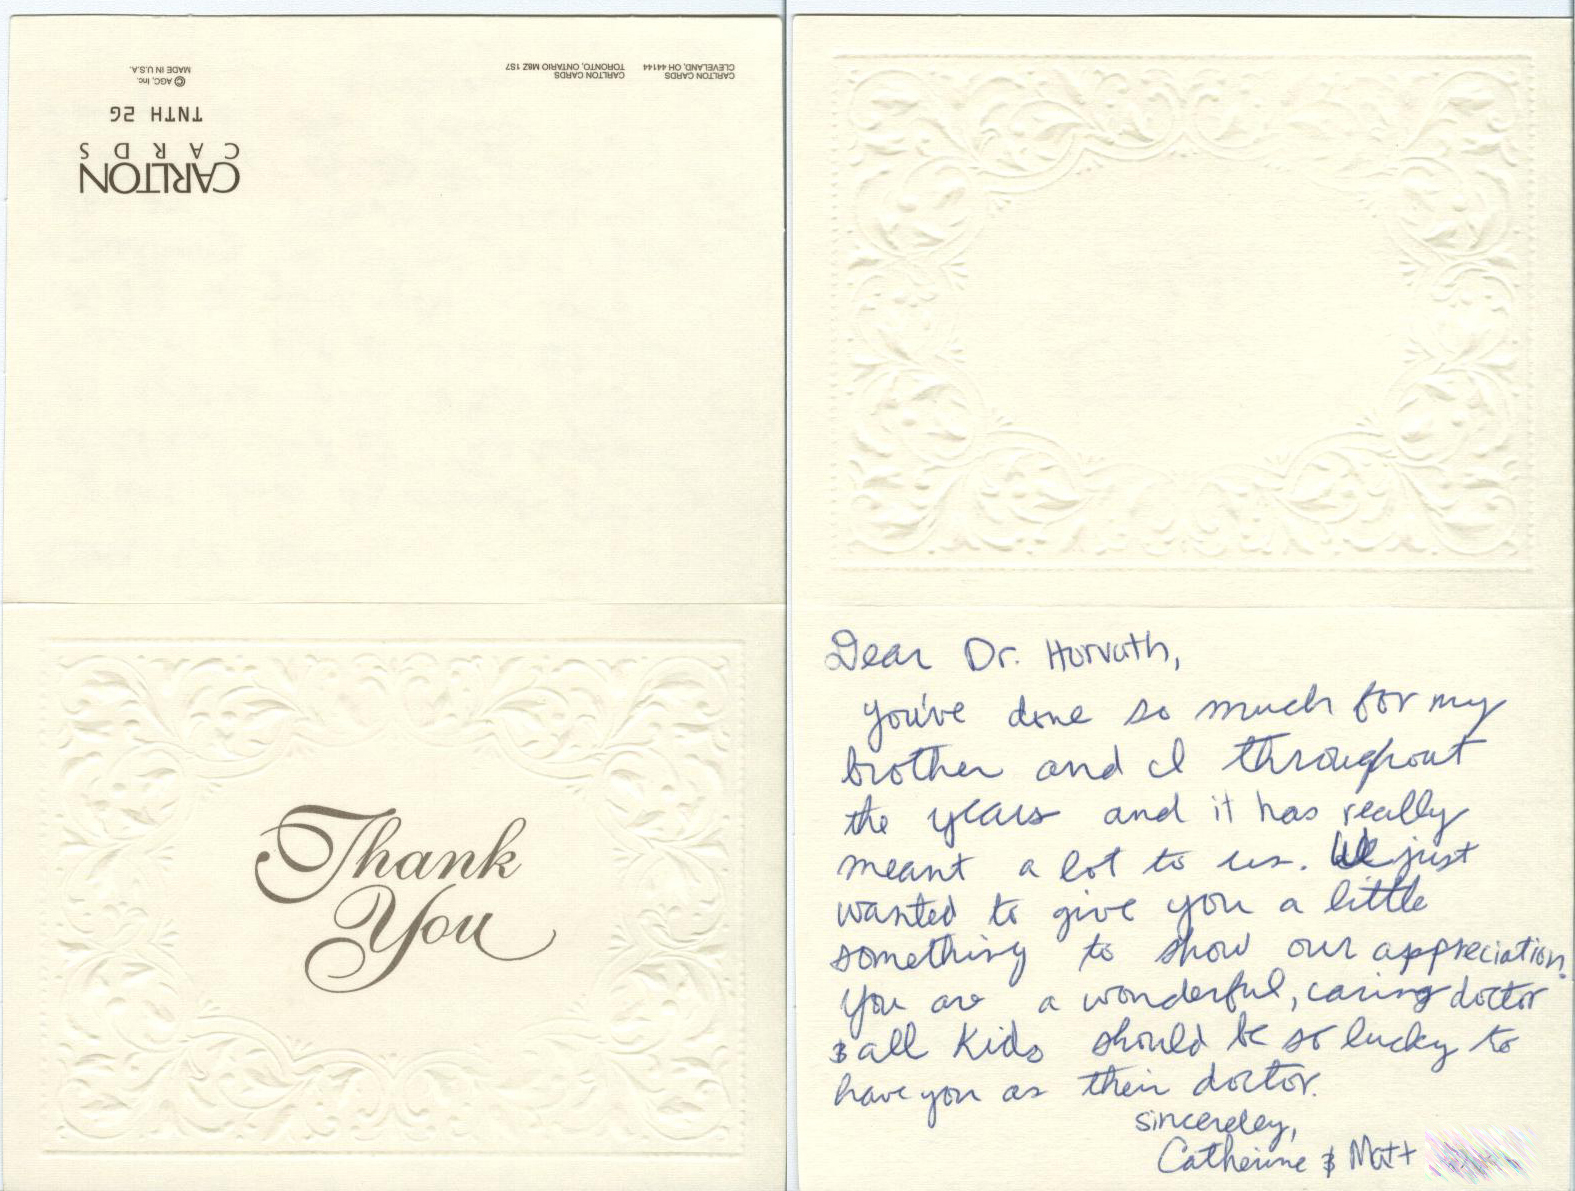 CARLTON
CARDS
TNTH 2G
© AGC, Inc.
MADE IN U.S.A.
CARLTON CARDS
TORONTO, ONTARIO M8Z 1S7
CARLTON CARDS
CLEVELAND, OH 44144
Thank
You
Dear Dr. Horvath,
you've done so much for my
brother and I throughout
the years and it has really
meant a lot to us. We just
wanted to give you a little
something to show our appreciation.
You are a wonderful, caring doctor
& all kids should be so lucky to
have you as their doctor.
sincereley,
Catherine & Matt